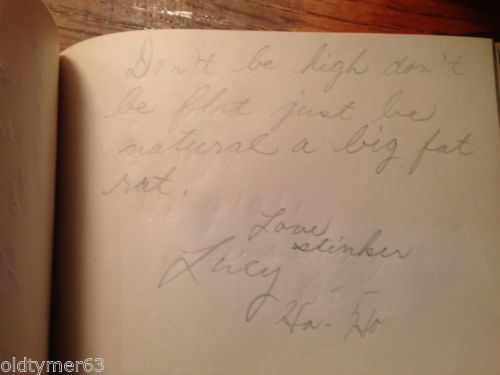 Don't be high don't
be flat just be
natural a big fat
rat.
Love
stinker
Lucy
Ha - Ho
oldtymer63